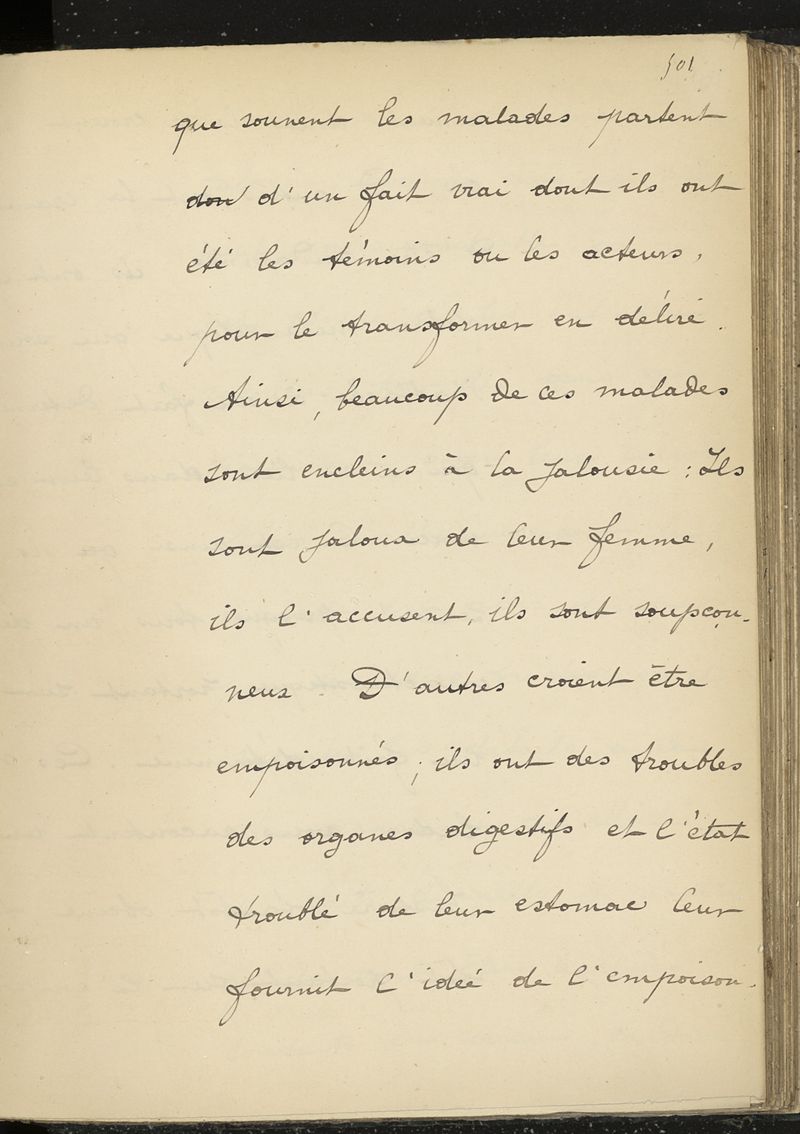 501
que souvent les malades partent
don d'un fait vrai dont ils ont
été les témoins ou les acteurs,
pour le transformer en déliré.
Ainsi, beaucoup de ces malades
sont encleins à la jalousie : Ils
sont jaloux de leur femme,
ils l'accusent, ils sont soupçon-
neux. D'autres croient être
empoisonnés ; ils ont des troubles
des organes digestifs et l'état
troublé de leur estomac leur
fournit l'idée de l'empoison-